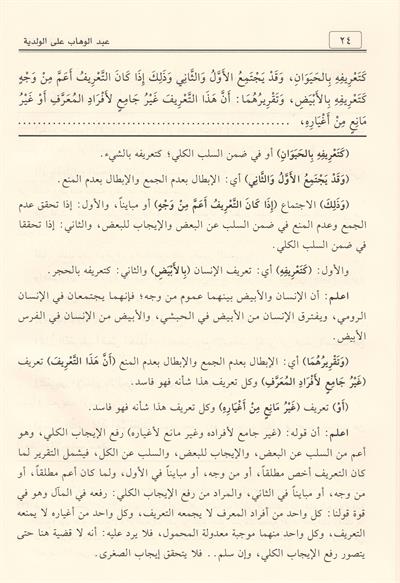 ٢٤
عبد الوهاب على الولدية
كَتَعْرِيفِهِ بِالحَيَوَانِ، وَقَدْ يَجْتَمِعُ الأَوَّلُ وَالثَّانِي وَذَلِكَ إِذَا كَانَ التَّعْرِيفُ أَعَمَّ مِنْ وَجْهٍ
كَتَعْرِيفِهِ بِالأَبْيَضِ، وَتَقْرِيرُهُمَا: أَنَّ هَذَا التَّعْرِيفَ غَيْرُ جَامِعٍ لأَفْرَادِ المُعَرَّفِ أَوْ غَيْرُ
مَانِعٍ مِنْ أَغْيَارِهِ، ..............................................
(كَتَعْرِيفِهِ بِالحَيَوَانِ) أو في ضمن السلب الكلي؛ كتعريفه بالشيء.
(وَقَدْ يَجْتَمِعُ الأَوَّلُ وَالثَّانِي) أي: الإبطال بعدم الجمع والإبطال بعدم المنع.
(وَذَلِكَ) الاجتماع (إِذَا كَانَ التَّعْرِيفُ أَعَمَّ مِنْ وَجْهٍ) أو مبايناً، والأول: إذا تحقق عدم
الجمع وعدم المنع في ضمن السلب عن البعض والإيجاب للبعض، والثاني: إذا تحققا
في ضمن السلب الكلي.
والأول: (كَتَعْرِيفِهِ) أي: تعريف الإنسان (بِالأَبْيَضِ) والثاني: كتعريفه بالحجر.
اعلم: أن الإنسان والأبيض بينهما عموم من وجه؛ فإنهما يجتمعان في الإنسان
الرومي، ويفترق الإنسان من الأبيض في الحبشي، والأبيض من الإنسان في الفرس
الأبيض.
(وَتَقْرِيرُهُمَا) أي: الإبطال بعدم الجمع والإبطال بعدم المنع (أَنَّ هَذَا التَّعْرِيفَ) تعريف
(غَيْرُ جَامِعٍ لأَفْرَادِ المُعَرَّفِ) وكل تعريف هذا شأنه فهو فاسد.
(أَوْ) تعريف (غَيْرُ مَانِعٍ مِنْ أَغْيَارِهِ) وكل تعريف هذا شأنه فهو فاسد.
اعلم: أن قوله: (غير جامع لأفراده وغير مانع لأغياره) رفع الإيجاب الكلي، وهو
أعم من السلب عن البعض، والإيجاب للبعض، والسلب عن الكل، فيشمل التقرير لما
كان التعريف أخص مطلقاً، أو من وجه، أو مبايناً في الأول، ولما كان أعم مطلقاً، أو
من وجه، أو مبايناً في الثاني، والمراد من رفع الإيجاب الكلي: رفعه في المآل وهو في
قوة قولنا: كل واحد من أفراد المعرف لا يجمعه التعريف، وكل واحد من أغياره لا يمنعه
التعريف، وكل واحد منهما موجبة معدولة المحمول، فلا يرد عليه: أنه لا قضية هنا حتى
يتصور رفع الإيجاب الكلي، وإن سلم.. فلا يتحقق إيجاب الصغرى.